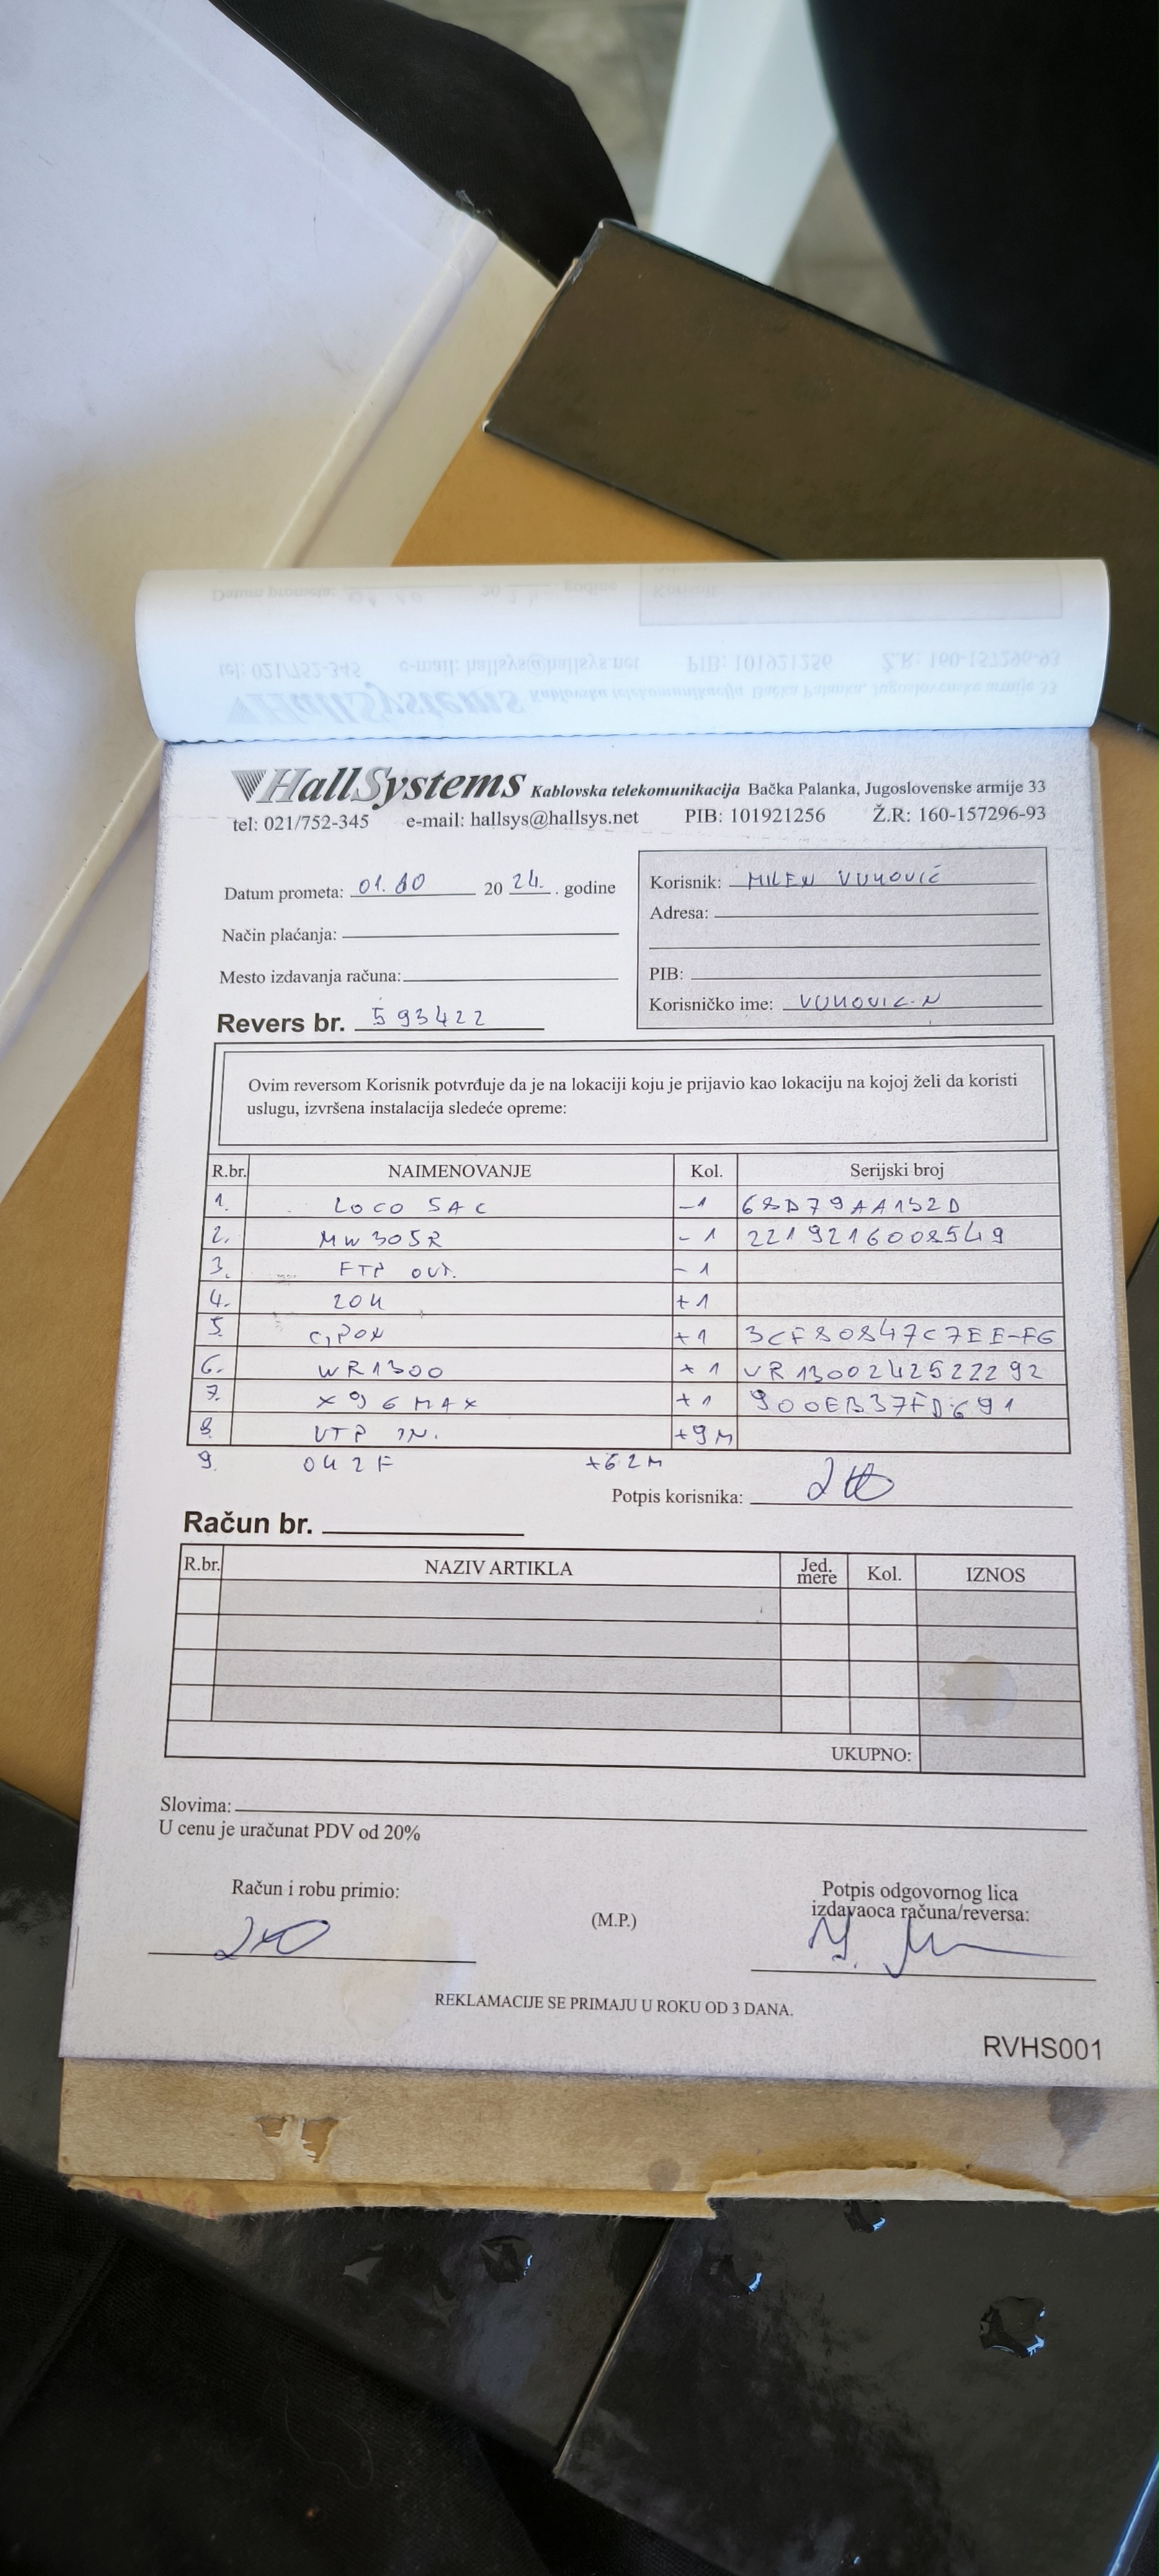 HallSystems Kablovska telekomunikacija Bačka Palanka, Jugoslovenske armije 33
tel: 021/752-345 e-mail: hallsys@hallsys.net PIB: 101921256 Ž.R: 160-157296-93
Datum prometa: 01.10 20 24. . godine
Način plaćanja:
Mesto izdavanja računa:
Revers br. 593422
Korisnik: MILEN VUKOVIĆ
Adresa:
PIB:
Korisničko ime: VUKOVIC-N
Ovim reversom Korisnik potvrđuje da je na lokaciji koju je prijavio kao lokaciju na kojoj želi da koristi
uslugu, izvršena instalacija sledeće opreme:
R.br. NAIMENOVANJE Kol. Serijski broj
1. LOCO 5AC -1 68D79AA132D
2. MW305R -1 2219216008549
3. FTP OUT. -1
4. 20K +1
5. GPON +1 3CF80847C7EE-FG
6. WR1300 +1 VR1300242522292
7. X96MAX +1 900EB37FD691
8. UTP IN. +9M
9. OK2F +62M
Potpis korisnika:
Račun br.
R.br. NAZIV ARTIKLA Jed. mere Kol. IZNOS
UKUPNO:
Slovima:
U cenu je uračunat PDV od 20%
Račun i robu primio:
(M.P.)
Potpis odgovornog lica
izdavaoca računa/reversa:
REKLAMACIJE SE PRIMAJU U ROKU OD 3 DANA.
RVHS001